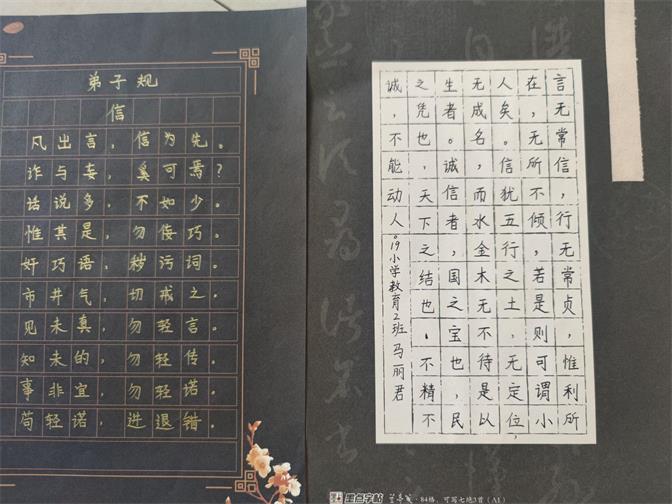 弟子规
信
凡出言,信为先。
诈与妄,奚可焉?
话说多,不如少。
惟其是,勿佞巧。
奸巧语,秽污词。
市井气,切戒之。
见未真,勿轻言。
知未的,勿轻传。
事非宜,勿轻诺。
苟轻诺,进退错。
言无常信,行无常贞,惟利所
在,无所不倾,若是则可谓小
人矣。信犹五行之土,无定位,
无成名,而水金木无不待是以
生者。诚信者,国之宝也,民
之凭也,天下之结也.不精不
诚,不能动人。19小学教育2班马丽君
墨点字帖 84格,可写七绝3首(A1)